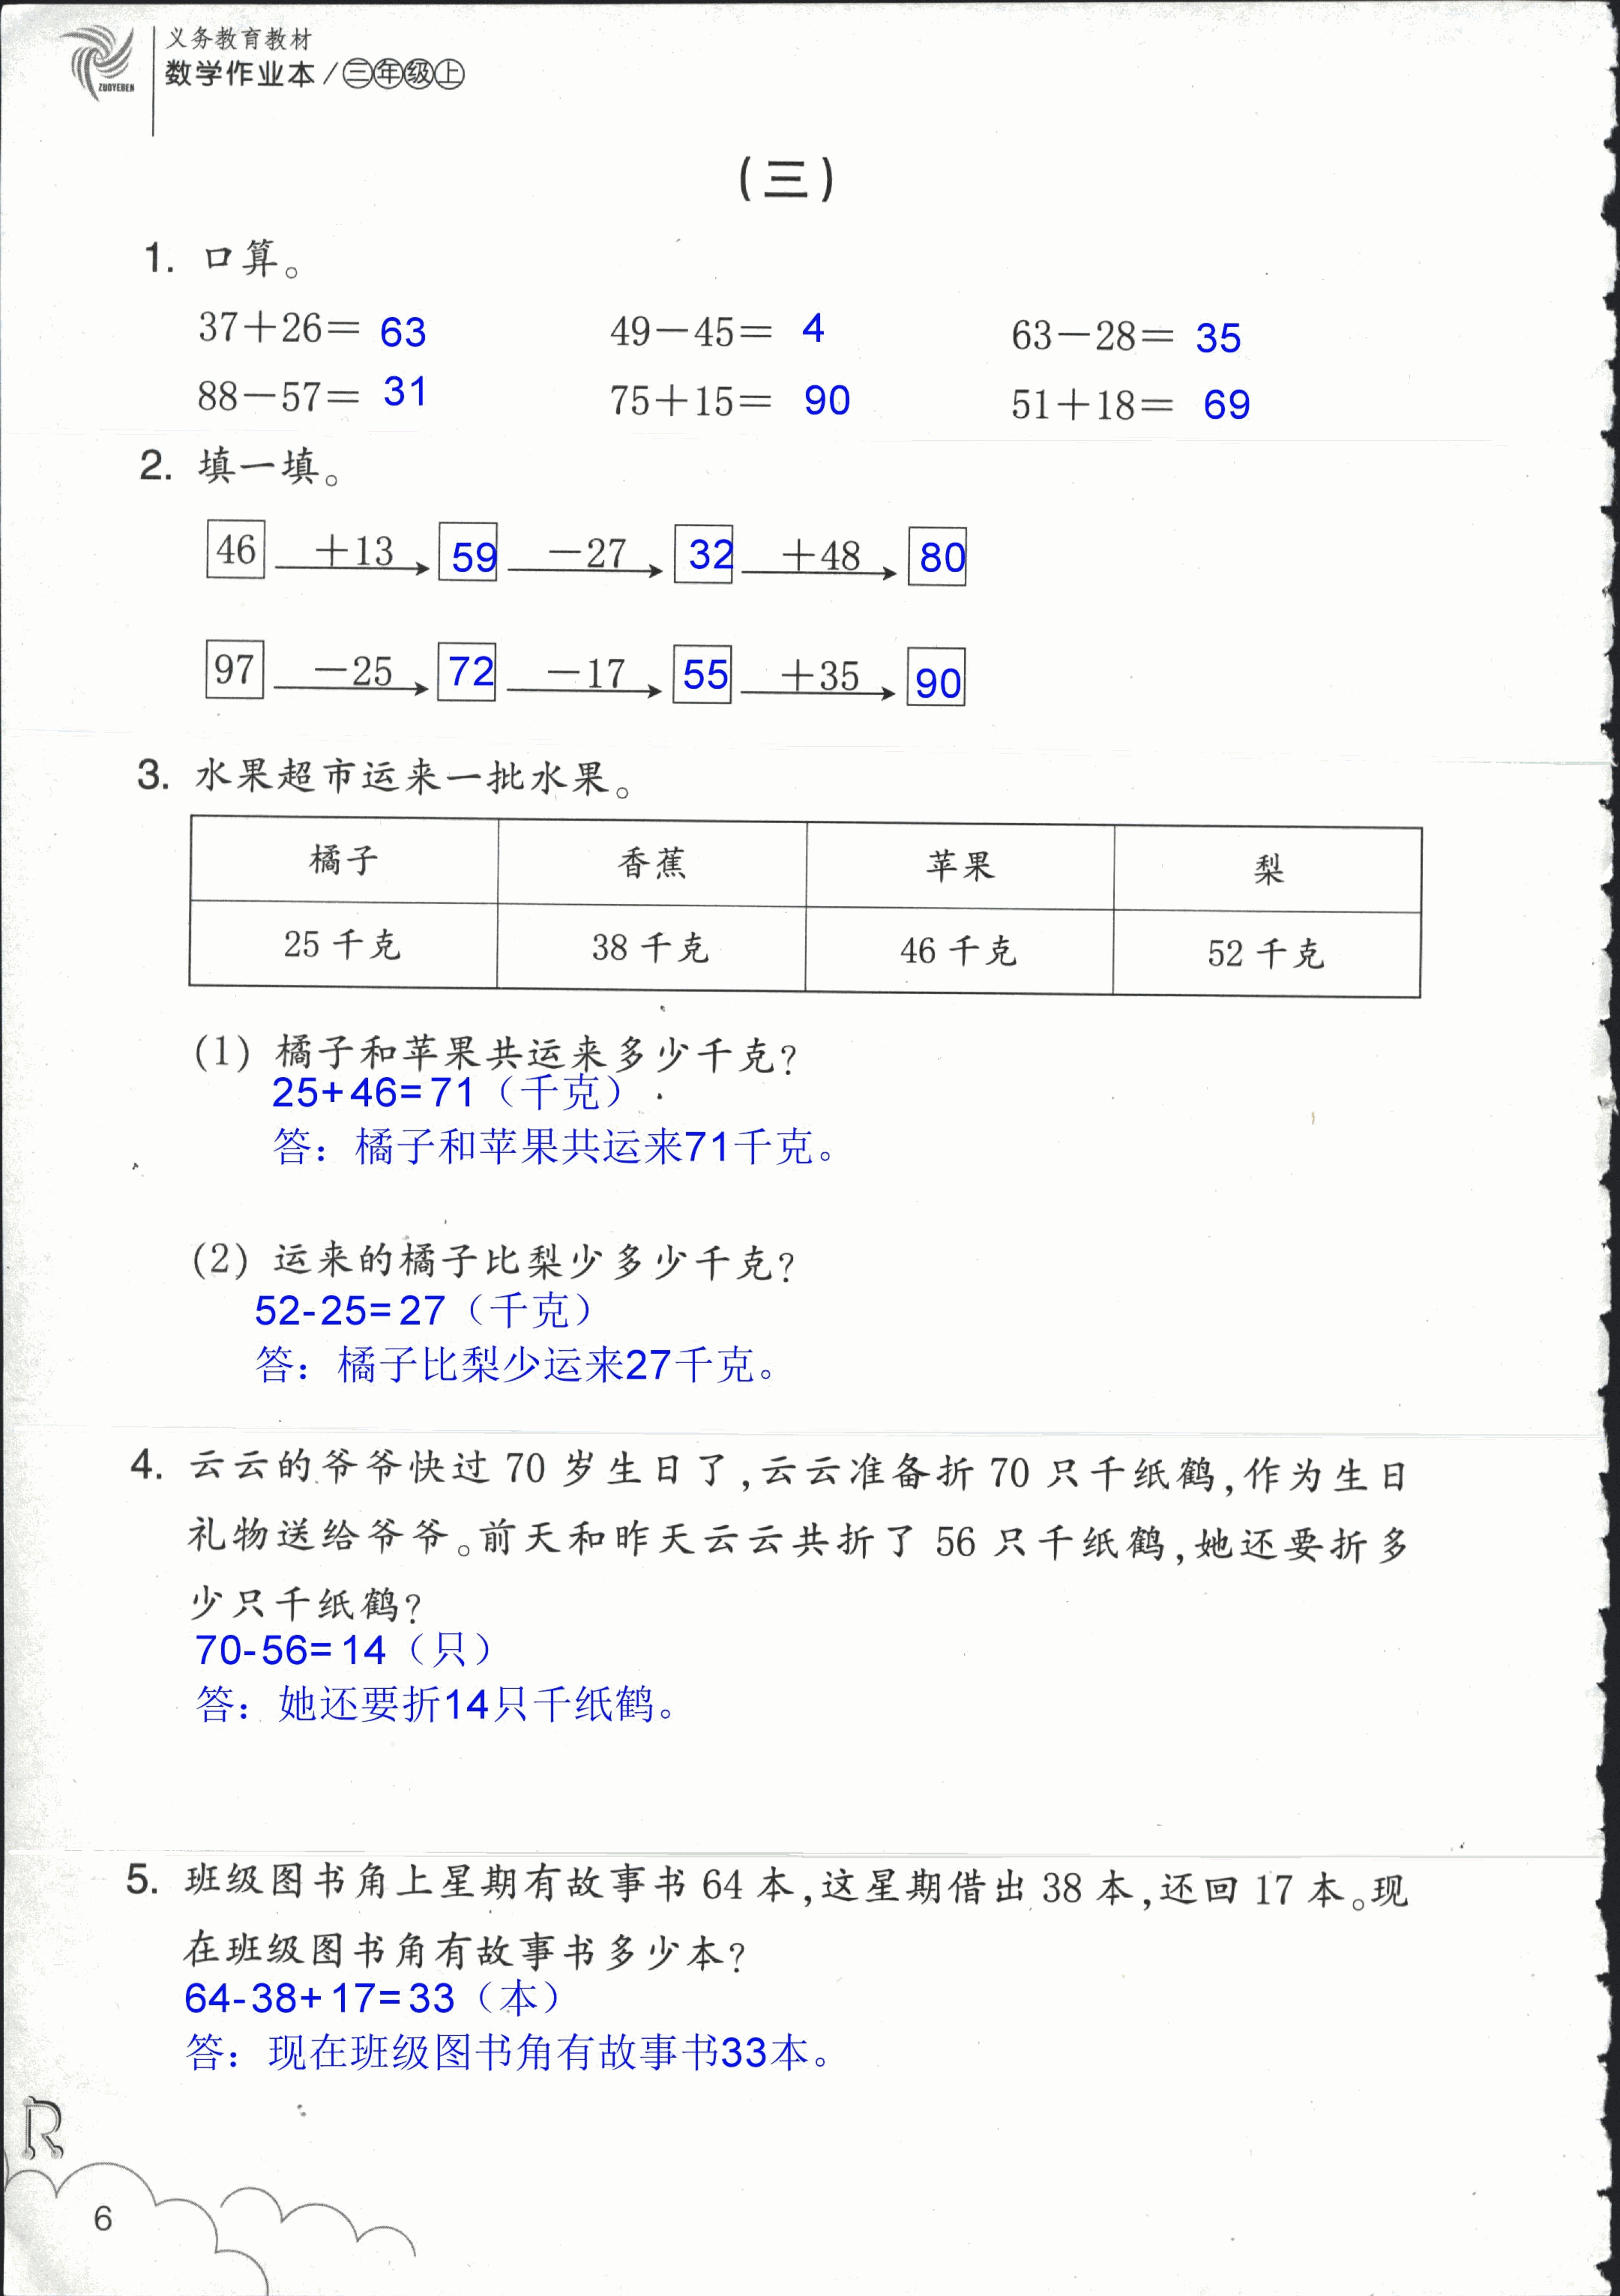 义务教育教材
数学作业本/三年级上
ZUOYEBEN
(三)
1. 口算。
37+26= 63 49-45= 4 63-28= 35
88-57= 31 75+15= 90 51+18= 69
2. 填一填。
46 +13 59 -27 32 +48 80
97 -25 72 -17 55 +35 90
3. 水果超市运来一批水果。
橘子 香蕉 苹果 梨
25 千克 38 千克 46 千克 52 千克
(1) 橘子和苹果共运来多少千克?
25+46=71（千克）
答：橘子和苹果共运来71千克。
(2) 运来的橘子比梨少多少千克?
52-25=27（千克）
答：橘子比梨少运来27千克。
4. 云云的爷爷快过 70 岁生日了,云云准备折 70 只千纸鹤,作为生日
礼物送给爷爷。前天和昨天云云共折了 56 只千纸鹤,她还要折多
少只千纸鹤?
70-56=14（只）
答：她还要折14只千纸鹤。
5. 班级图书角上星期有故事书 64 本,这星期借出 38 本,还回 17 本。现
在班级图书角有故事书多少本?
64-38+17=33（本）
答：现在班级图书角有故事书33本。
R
6